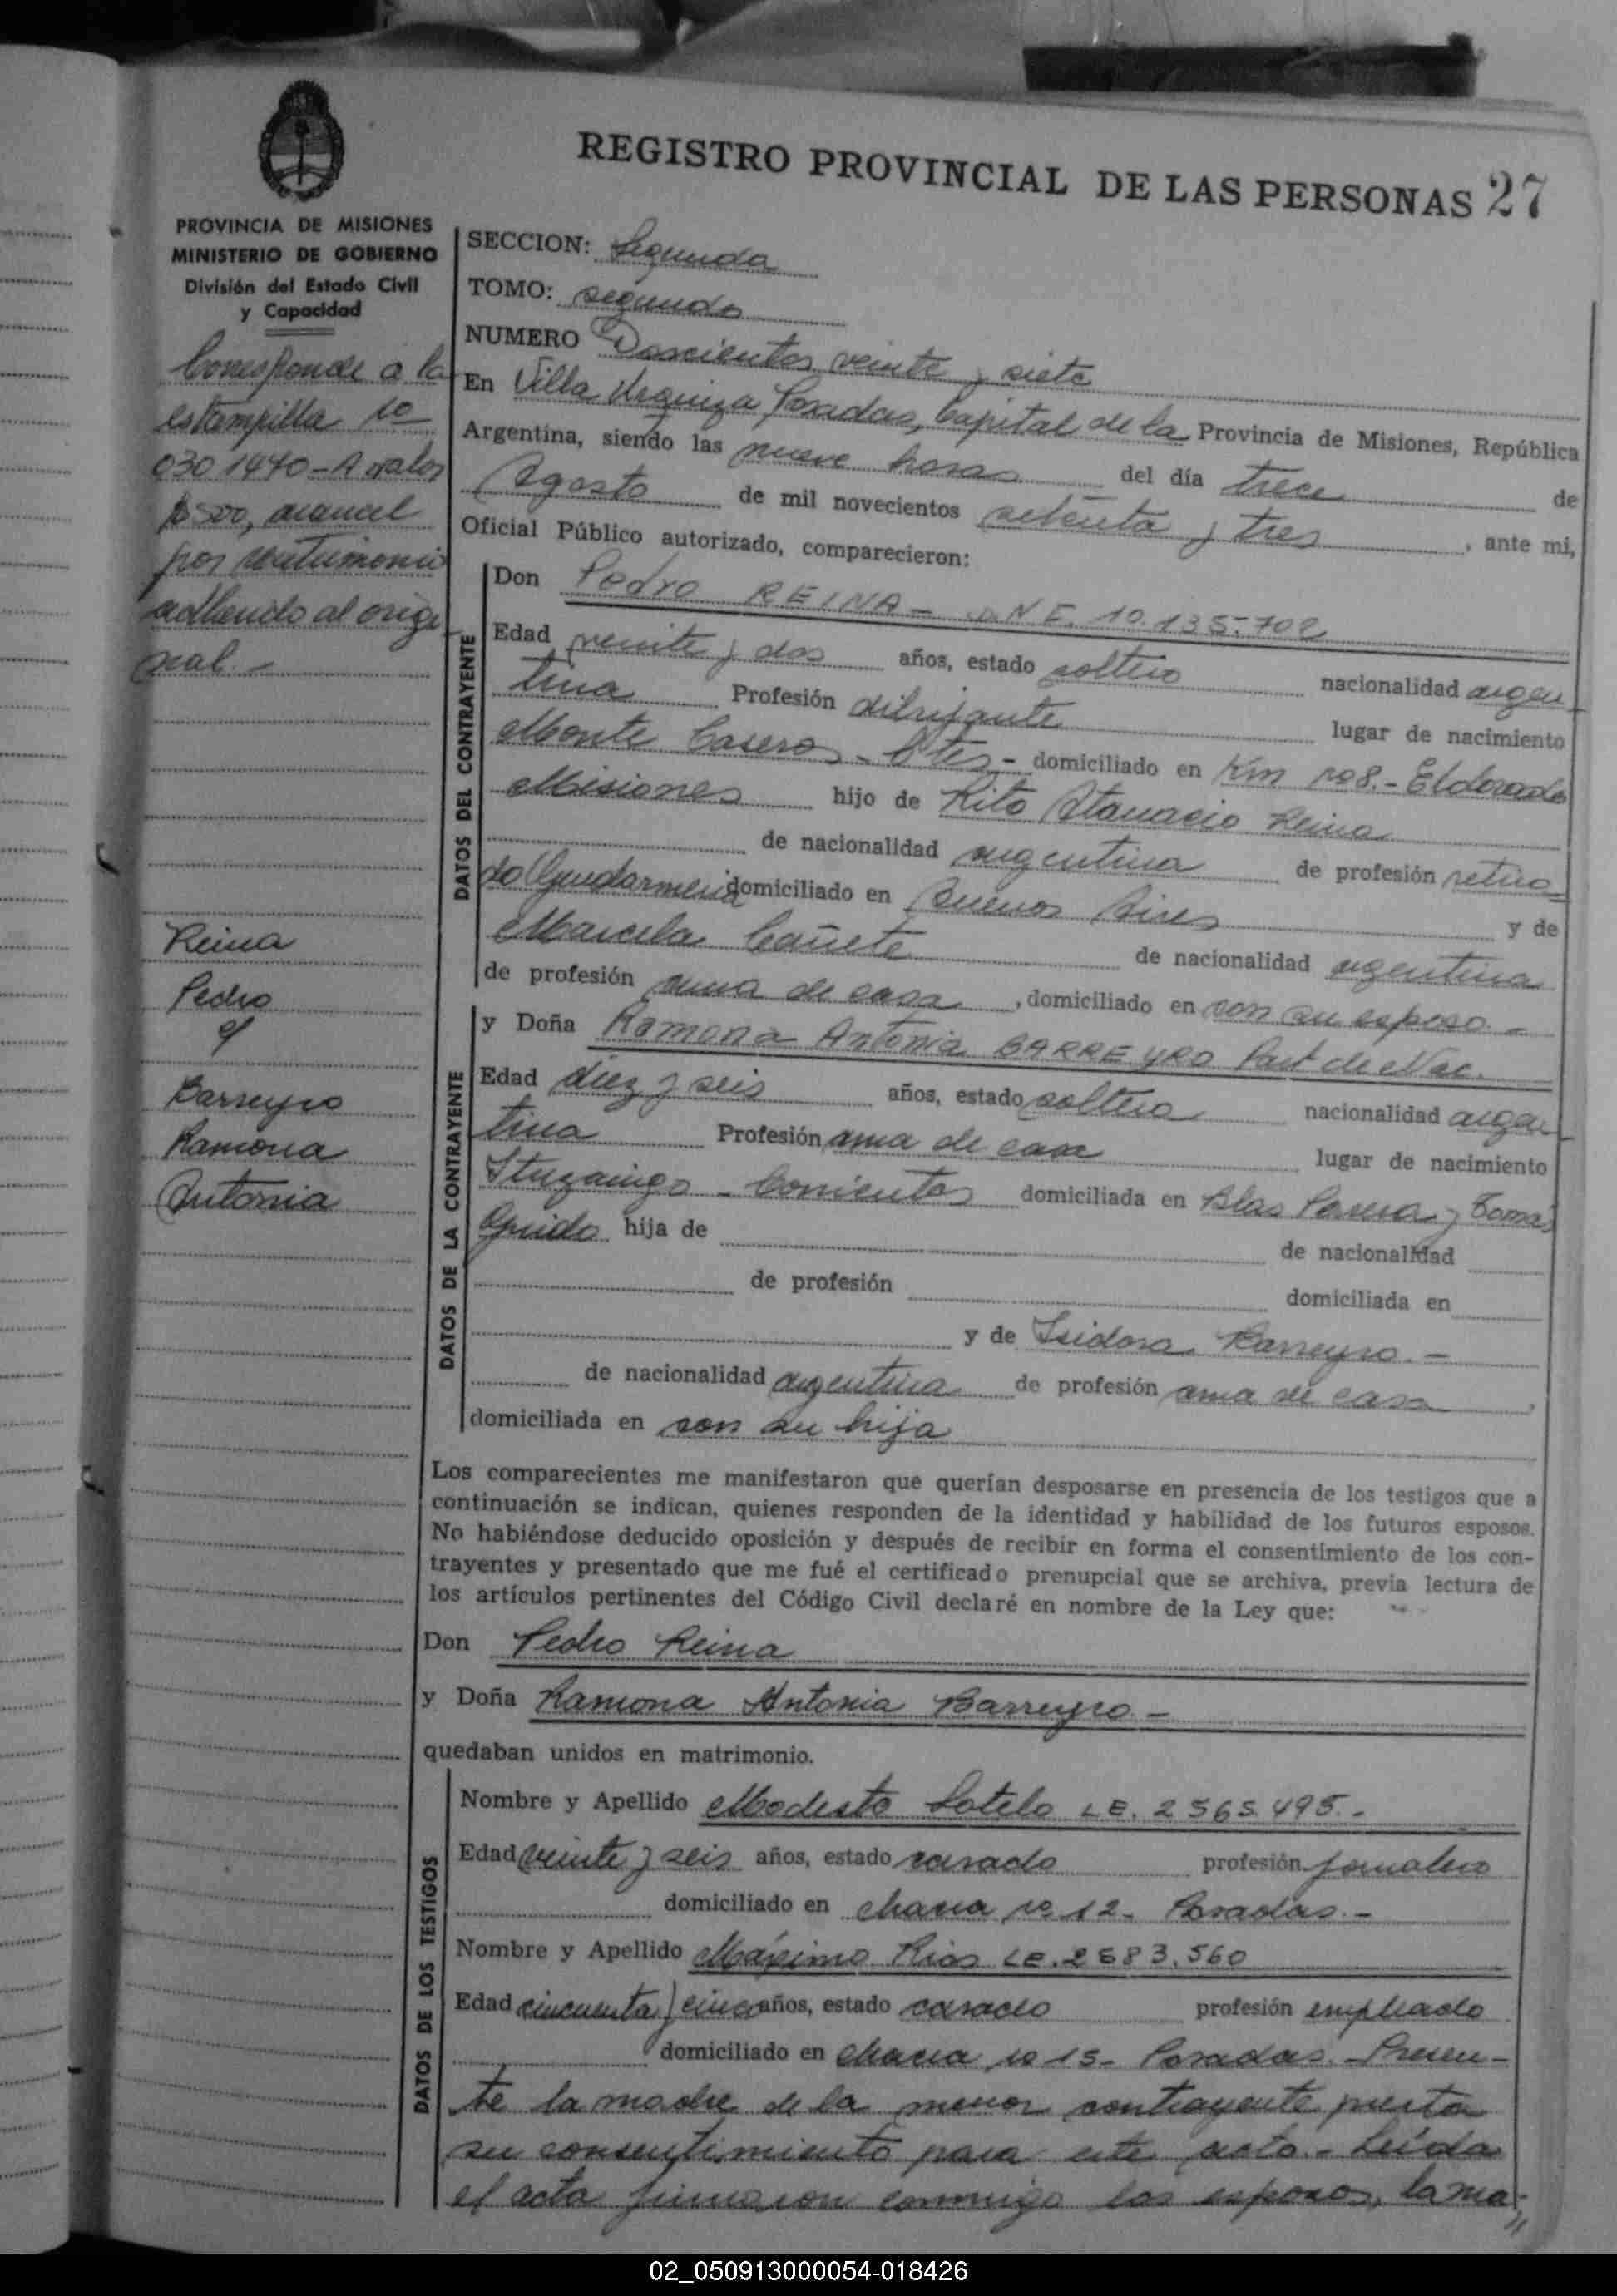 REGISTRO PROVINCIAL DE LAS PERSONAS 27
PROVINCIA DE MISIONES
MINISTERIO DE GOBIERNO
División del Estado Civil
y Capacidad
Corresponde a la
estampilla no
0301440-A valor
$500, arancel
por matrimonio
adherido al origi
nal.-
Reina
Pedro
c/
Barreyro
Ramona
Antonia
SECCION: Segunda
TOMO: segundo
NUMERO Doscientos veinte y siete
En Villa Urquiza Posadas, Capital de la Provincia de Misiones, República
Argentina, siendo las nueve horas del día trece de
Agosto de mil novecientos setenta y tres, ante mi,
Oficial Público autorizado, comparecieron:
DATOS DEL CONTRAYENTE
Don Pedro REINA - D.N.E. 10.135.702
Edad veinte y dos años, estado soltero nacionalidad argen
tina Profesión dibujante lugar de nacimiento
Monte Caseros - Ctes - domiciliado en Km no 8.- Eldorado
Misiones hijo de Rito Atanacio Reina
de nacionalidad argentina de profesión retira-
do Gendarmeria domiciliado en Buenos Aires y de
Marcela Cañete de nacionalidad argentina
de profesión ama de casa, domiciliado en con su esposo.-
DATOS DE LA CONTRAYENTE
y Doña Ramona Antonia BARREYRO Part de Nac.
Edad diez y seis años, estado soltera nacionalidad argen-
tina Profesión ama de casa lugar de nacimiento
Ituzaingo - Corrientes domiciliada en Blas Parera y Tomás
Guido hija de
de nacionalidad
de profesión
domiciliada en
y de Isidora Barreyro.-
de nacionalidad argentina de profesión ama de casa,
domiciliada en con su hija
Los comparecientes me manifestaron que querían desposarse en presencia de los testigos que a
continuación se indican, quienes responden de la identidad y habilidad de los futuros esposos.
No habiéndose deducido oposición y después de recibir en forma el consentimiento de los con-
trayentes y presentado que me fué el certificado prenupcial que se archiva, previa lectura de
los artículos pertinentes del Código Civil declaré en nombre de la Ley que:
Don Pedro Reina
y Doña Ramona Antonia Barreyro.-
quedaban unidos en matrimonio.
DATOS DE LOS TESTIGOS
Nombre y Apellido Modesto Sotelo LE. 2565.495.-
Edad veinte y seis años, estado casado profesión jornalero
domiciliado en chacra no 12- Posadas.-
Nombre y Apellido Máximo Rios LE. 2583.560
Edad cincuenta y cinco años, estado casado profesión empleado
domiciliado en chacra no 15- Posadas.- Presen-
te la madre de la menor contrayente presta
su consentimiento para este acto.- Leída
el acta firmaron conmigo los esposos, la ma-
02_050913000054-018426